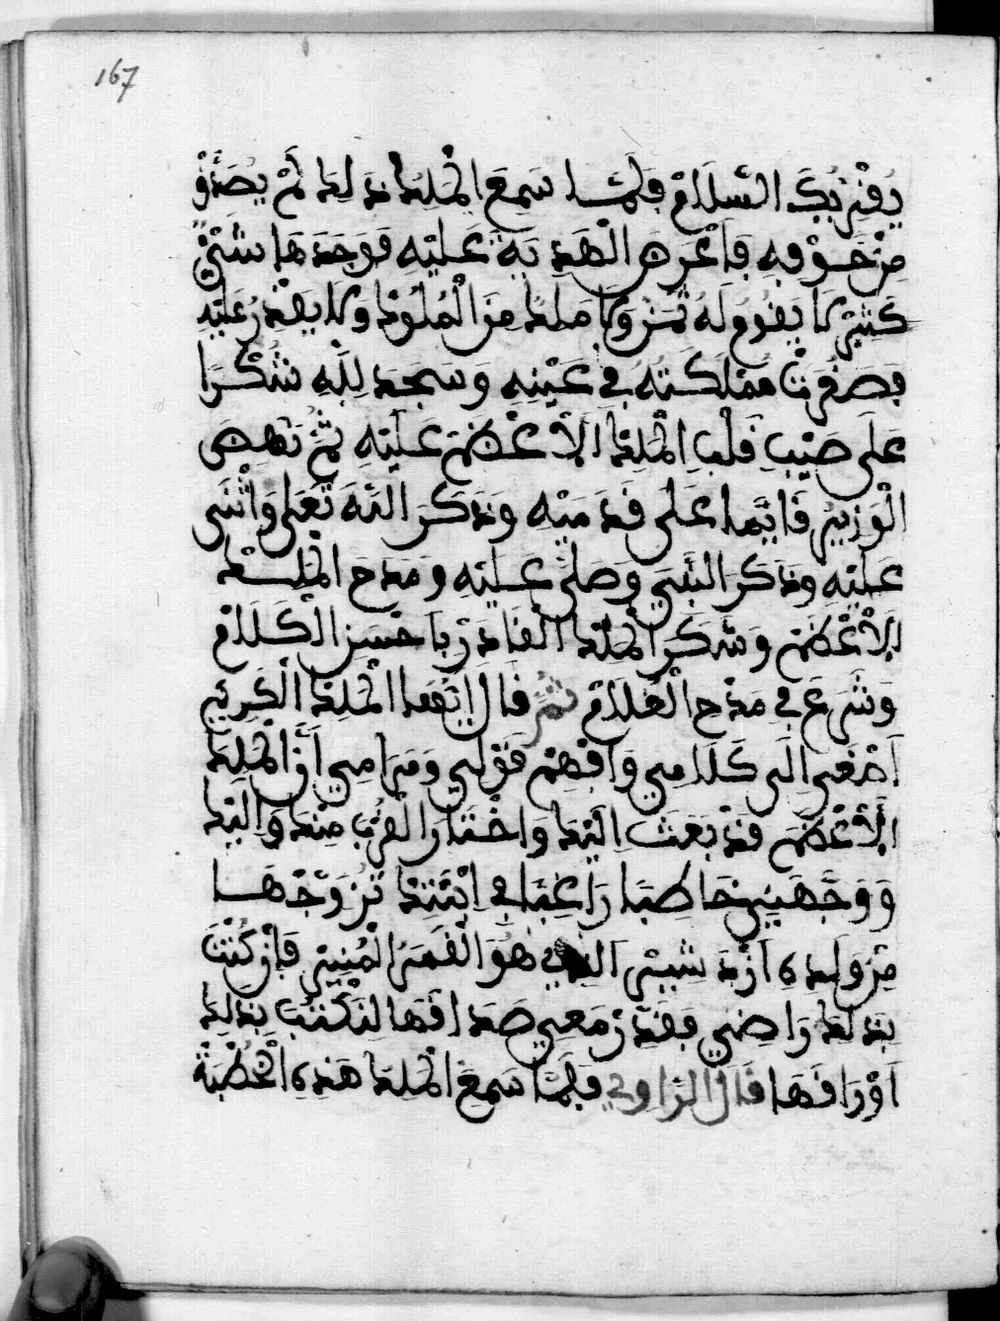 167
يُقْرِيُكَ السَّلَامْ فَلَمَّا سَمِعَ الْمَلِكُ ذَلِكَ لَمْ يُصَدَّقْ
مِنْ خَوْفِهِ فَاعْرَضَ الْهَدِيَةَ عَلَيْهِ فَوَجَدَهَا شَيْئ
كَثِيرْ لَا يَقُومُ لَهُ ثَمَنْ وَلَا مَلِكُ مِنَ الْمُلُوكْ وَلَا يَقْدَرُ عَلَيْهِ
فَصَغُرَتْ مَمْلَكَتُهُ فِي عَيْنِهِ وَسَجَدَ لِلَّهِ شُكْرَا
عَلَى طِيبِ قَلْبِ الْمَلِكْ الْأَعْظَمْ عَلَيْهِ ثُمَّ نَهَضَ
الْوَزِيرْ قَائِيمَا عَلَى قَدَمَيْهِ وَذَكَرَ اللَّهَ تَعَلَى وَأَثْنَى
عَلَيْهِ وَذَكَرَ النَّبِي وَصَلَّى عَلَيْهِ وَمَدَحَ الْمَلِكْ
الْأَعْظَمْ وَشَكَرَ الْمَلِكْ الْقَادَرْ بِاحْسَنِ الْكَلَامْ
وَشَرَعَ فِي مَدْحِ الْغُلَامْ ثُمَّ قَالَ ايُّهَا الْمَلِكْ الْكَرِيمْ
اصْغِي الَى كَلَامِي وَافْهَمْ قَوْلِي وَمَرَامِي أَنَّ الْمَلِكْ
الْأَعْظَمْ قَدْ بَعَثَ الَيْكْ وَاخْتَارَ الْقُرْبَ مِنْكْ وَالَيْكْ
وَوَجَّهَنِي خَاطِبَا رَاغِبَا فِي ابْنَتِكْ تُزَوِّجْهَا
مِنْ وَلِدِهِ ازْدَشِيرْ الذِي هُوَ الْقَمَرُ الْمُنِيرْ فَإِنْ كُنْتَ
بِذَلِكَ رَاضِي فَقَدْ مَعِي صَدَاقَهَا لِنَكْتُبْ بِذَلِكْ
اوْرَاقَهَا قَالَ الرَّاوِي فَلَمَّا سَمِعَ الْمَلِكْ هَذِهِ الْخُطْبَةْ